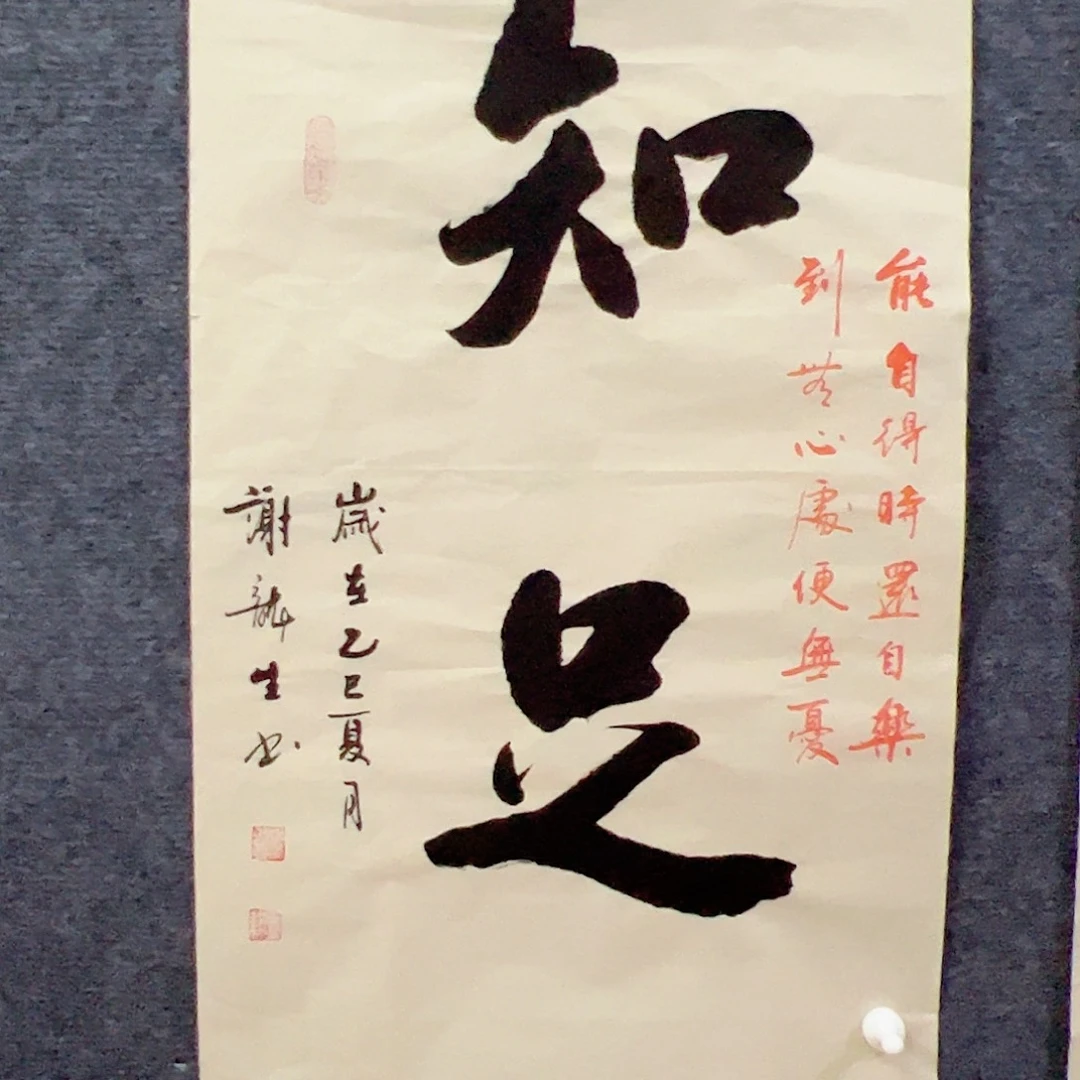 知足
能自得時還自樂
到無心處便無憂
歲在乙巳夏月
謝龍生书